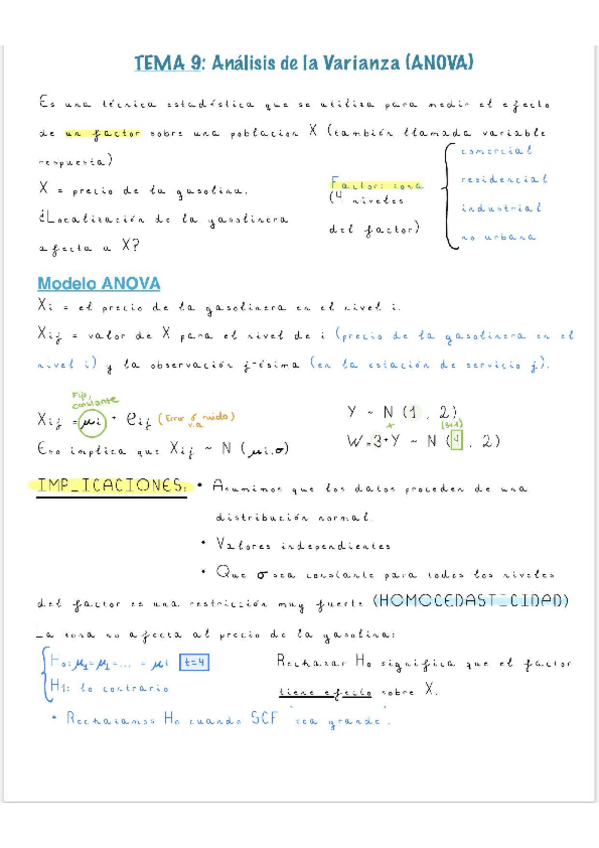 TEMA 9: Análisis de la Varianza (ANOVA)
Es una técnica estadística que se utiliza para medir el efecto
de un factor sobre una población X (también llamada variable
respuesta)
X = precio de la gasolina.
¿Localización de la gasolinera
afecta a X?
Factor: zona
(4 niveles
del factor)
comercial
residencial
industrial
no urbana
Modelo ANOVA
Xi = el precio de la gasolinera en el nivel i.
Xij = valor de X para el nivel de i (precio de la gasolinera en el
nivel i) y la observación j-ésima (en la estación de servicio j).
Fijo,
constante
Xij = μi + eij (Error ó ruido)
v.a
Eso implica que Xij ~ N (μi,σ)
Y ~ N (1, 2)
(3+1)
W=3+Y ~ N (4, 2)
IMPLICACIONES: • Asumimos que los datos proceden de una
distribución normal.
• Valores independientes
• Que σ sea constante para todos los niveles
del factor es una restricción muy fuerte (HOMOCEDASTICIDAD)
La zona no afecta al precio de la gasolina:
H0: μ1=μ1=... = μi t=4
H1: lo contrario
Rechazar H0 significa que el factor
tiene efecto sobre X.
• Rechazamos H0 cuando SCF "sea grande".